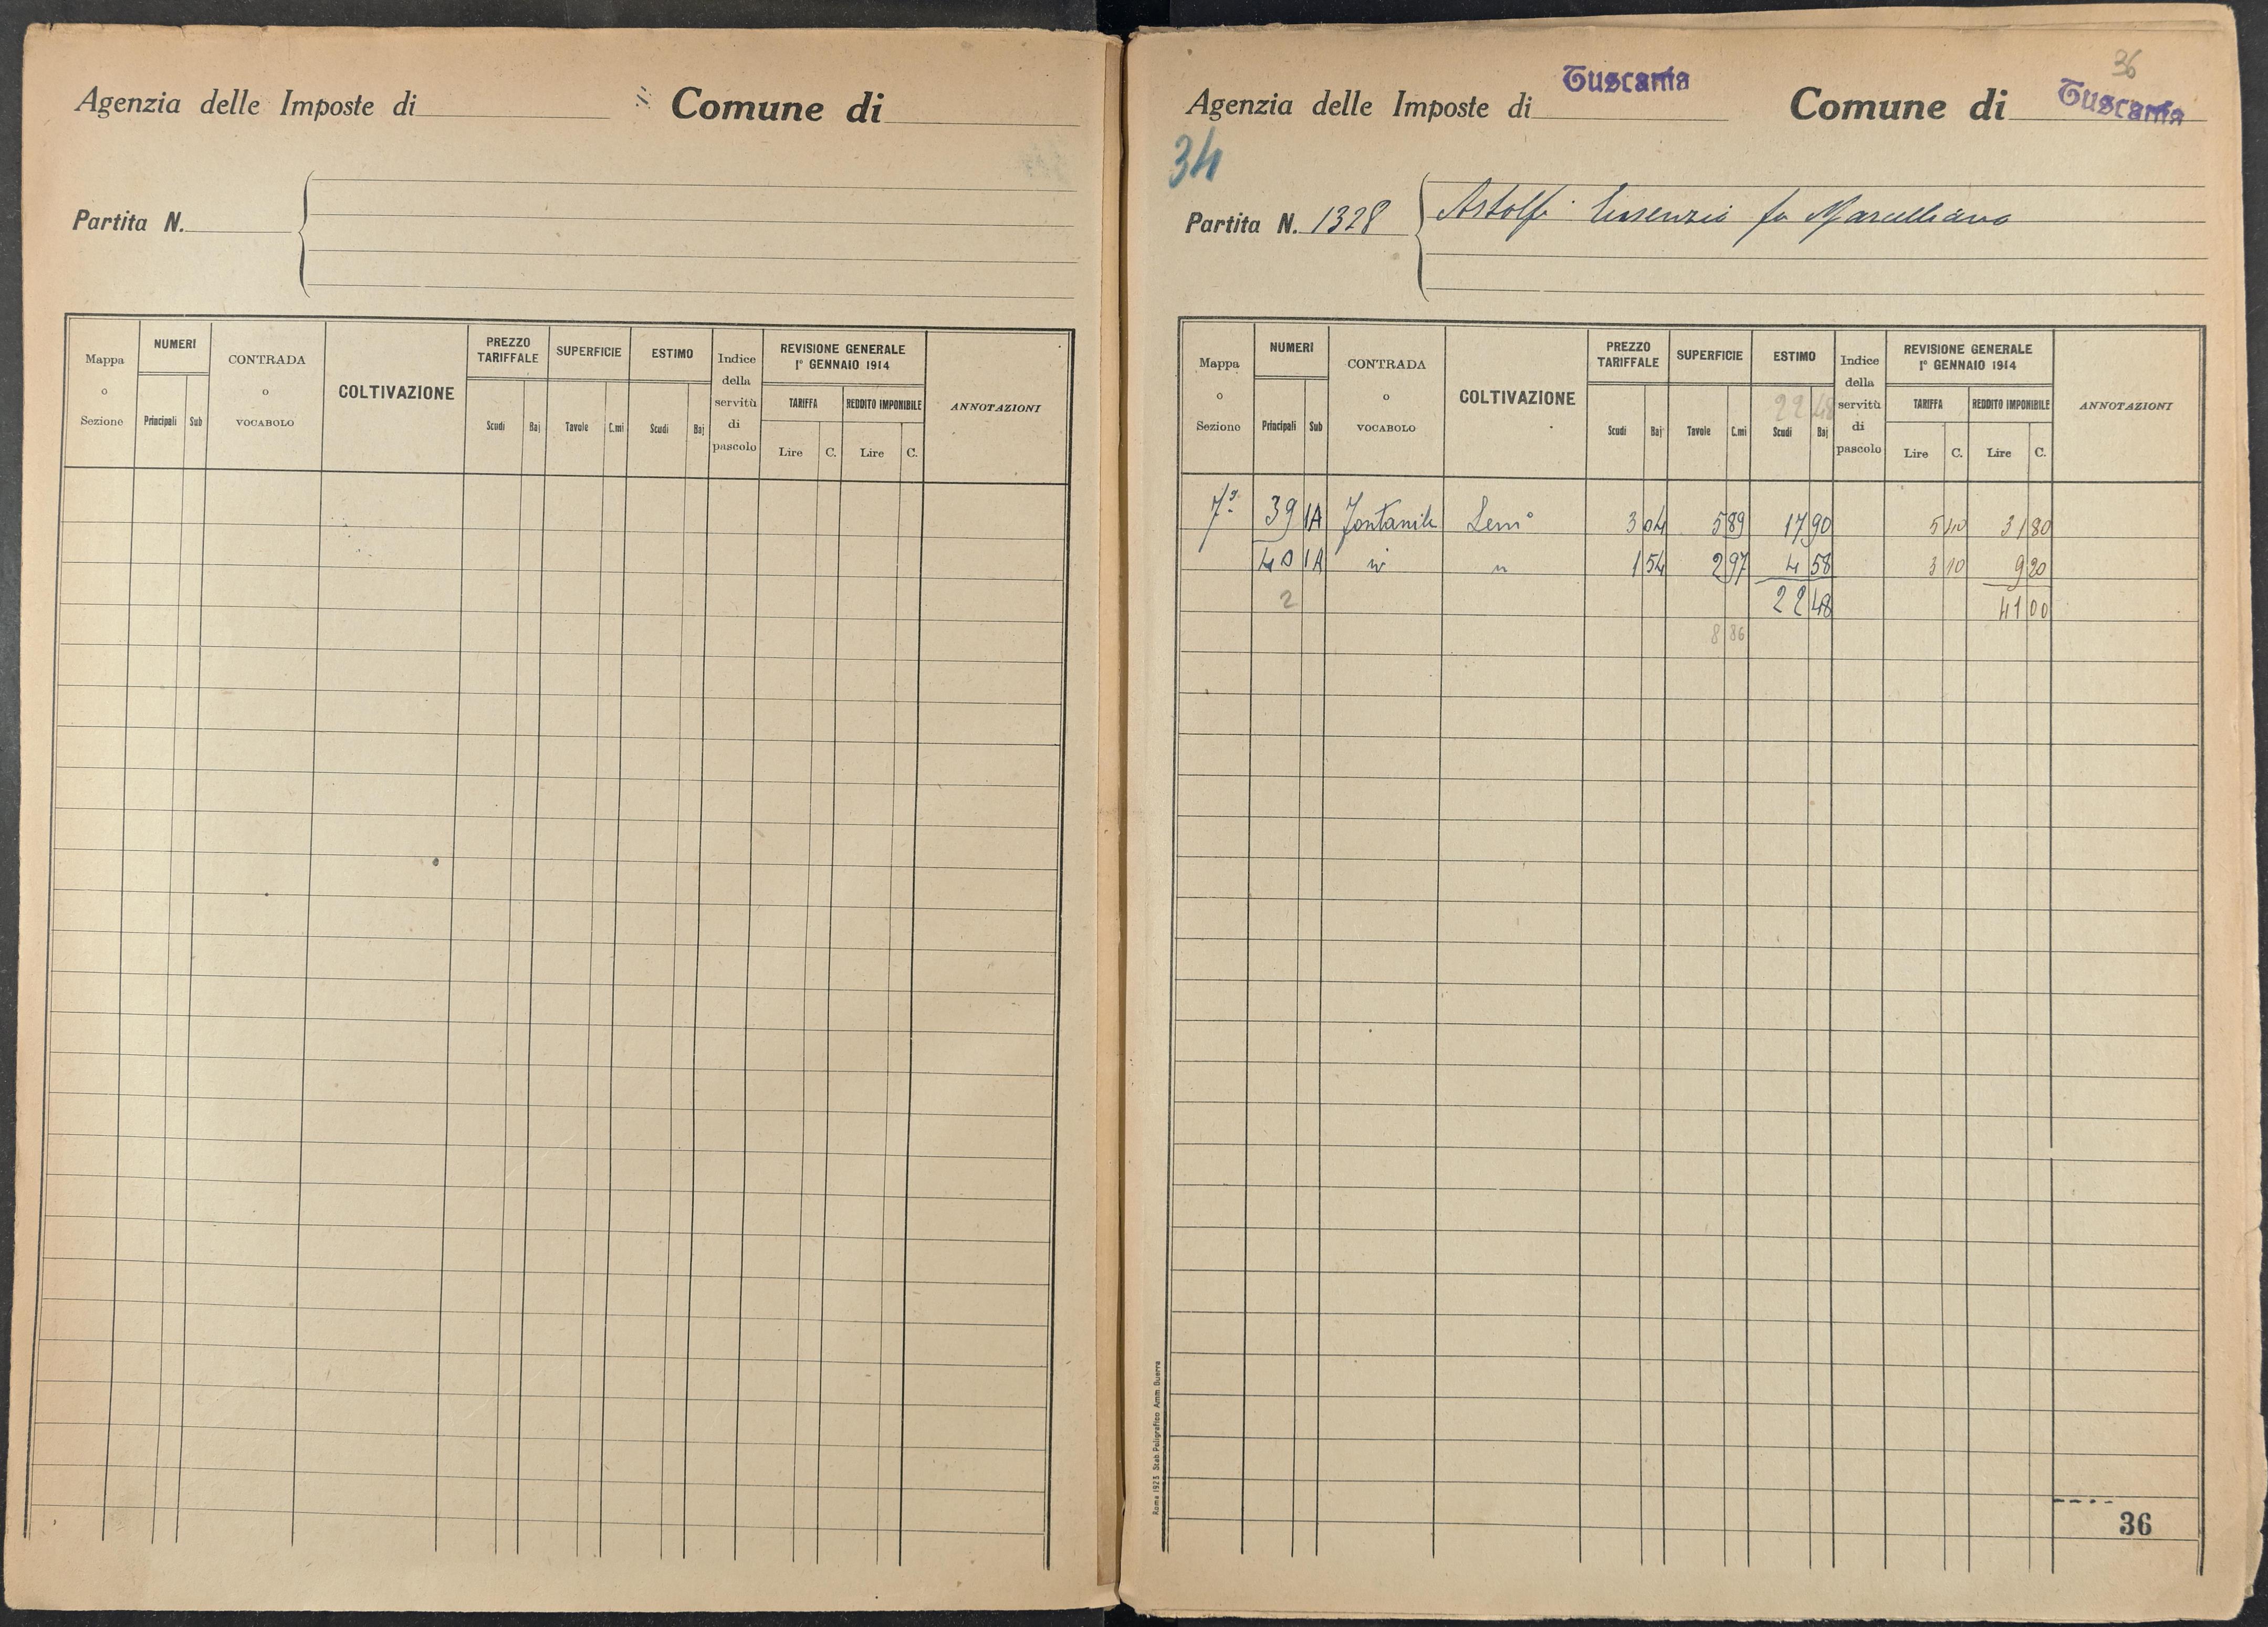 Agenzia delle Imposte di Comune di
Partita N.
Mappa o Sezione NUMERI Principali Sub CONTRADA o VOCABOLO COLTIVAZIONE PREZZO TARIFFALE Scudi Baj SUPERFICIE Tavole C.mi ESTIMO Scudi Baj Indice della servitù di pascolo REVISIONE GENERALE 1° GENNAIO 1914 TARIFFA Lire C. REDDITO IMPONIBILE Lire C. ANNOTAZIONI
36
Agenzia delle Imposte di Tuscania Comune di Tuscania
34
Partita N. 1328 Astolfi fu Marcelliano
Mappa o Sezione NUMERI Principali Sub CONTRADA o VOCABOLO COLTIVAZIONE PREZZO TARIFFALE Scudi Baj SUPERFICIE Tavole C.mi ESTIMO 22 48 Scudi Baj Indice della servitù di pascolo REVISIONE GENERALE 1° GENNAIO 1914 TARIFFA Lire C. REDDITO IMPONIBILE Lire C. ANNOTAZIONI
7ª 39 1A Fontanile Sem° 3 04 5 89 17 90 5 40 31 80
40 1A " 1 54 2 97 4 58 3 10 9 20
2 22 48 41 00
8 86
Roma 1923 Stab. Poligrafico Amm. Guerra
36